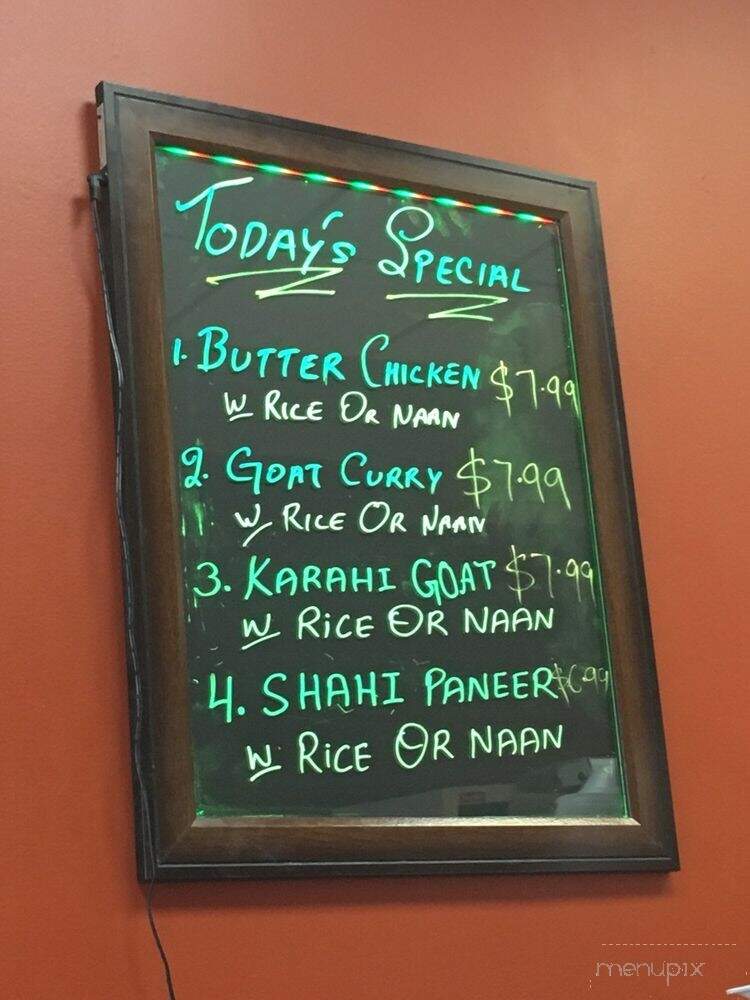 TODAY'S SPECIAL
1. BUTTER CHICKEN $7.99
W RICE OR NAAN
2. GOAT CURRY $7.99
W/ RICE OR NAAN
3. KARAHI GOAT $7.99
W RICE OR NAAN
4. SHAHI PANEER $6.99
W RICE OR NAAN
menupix